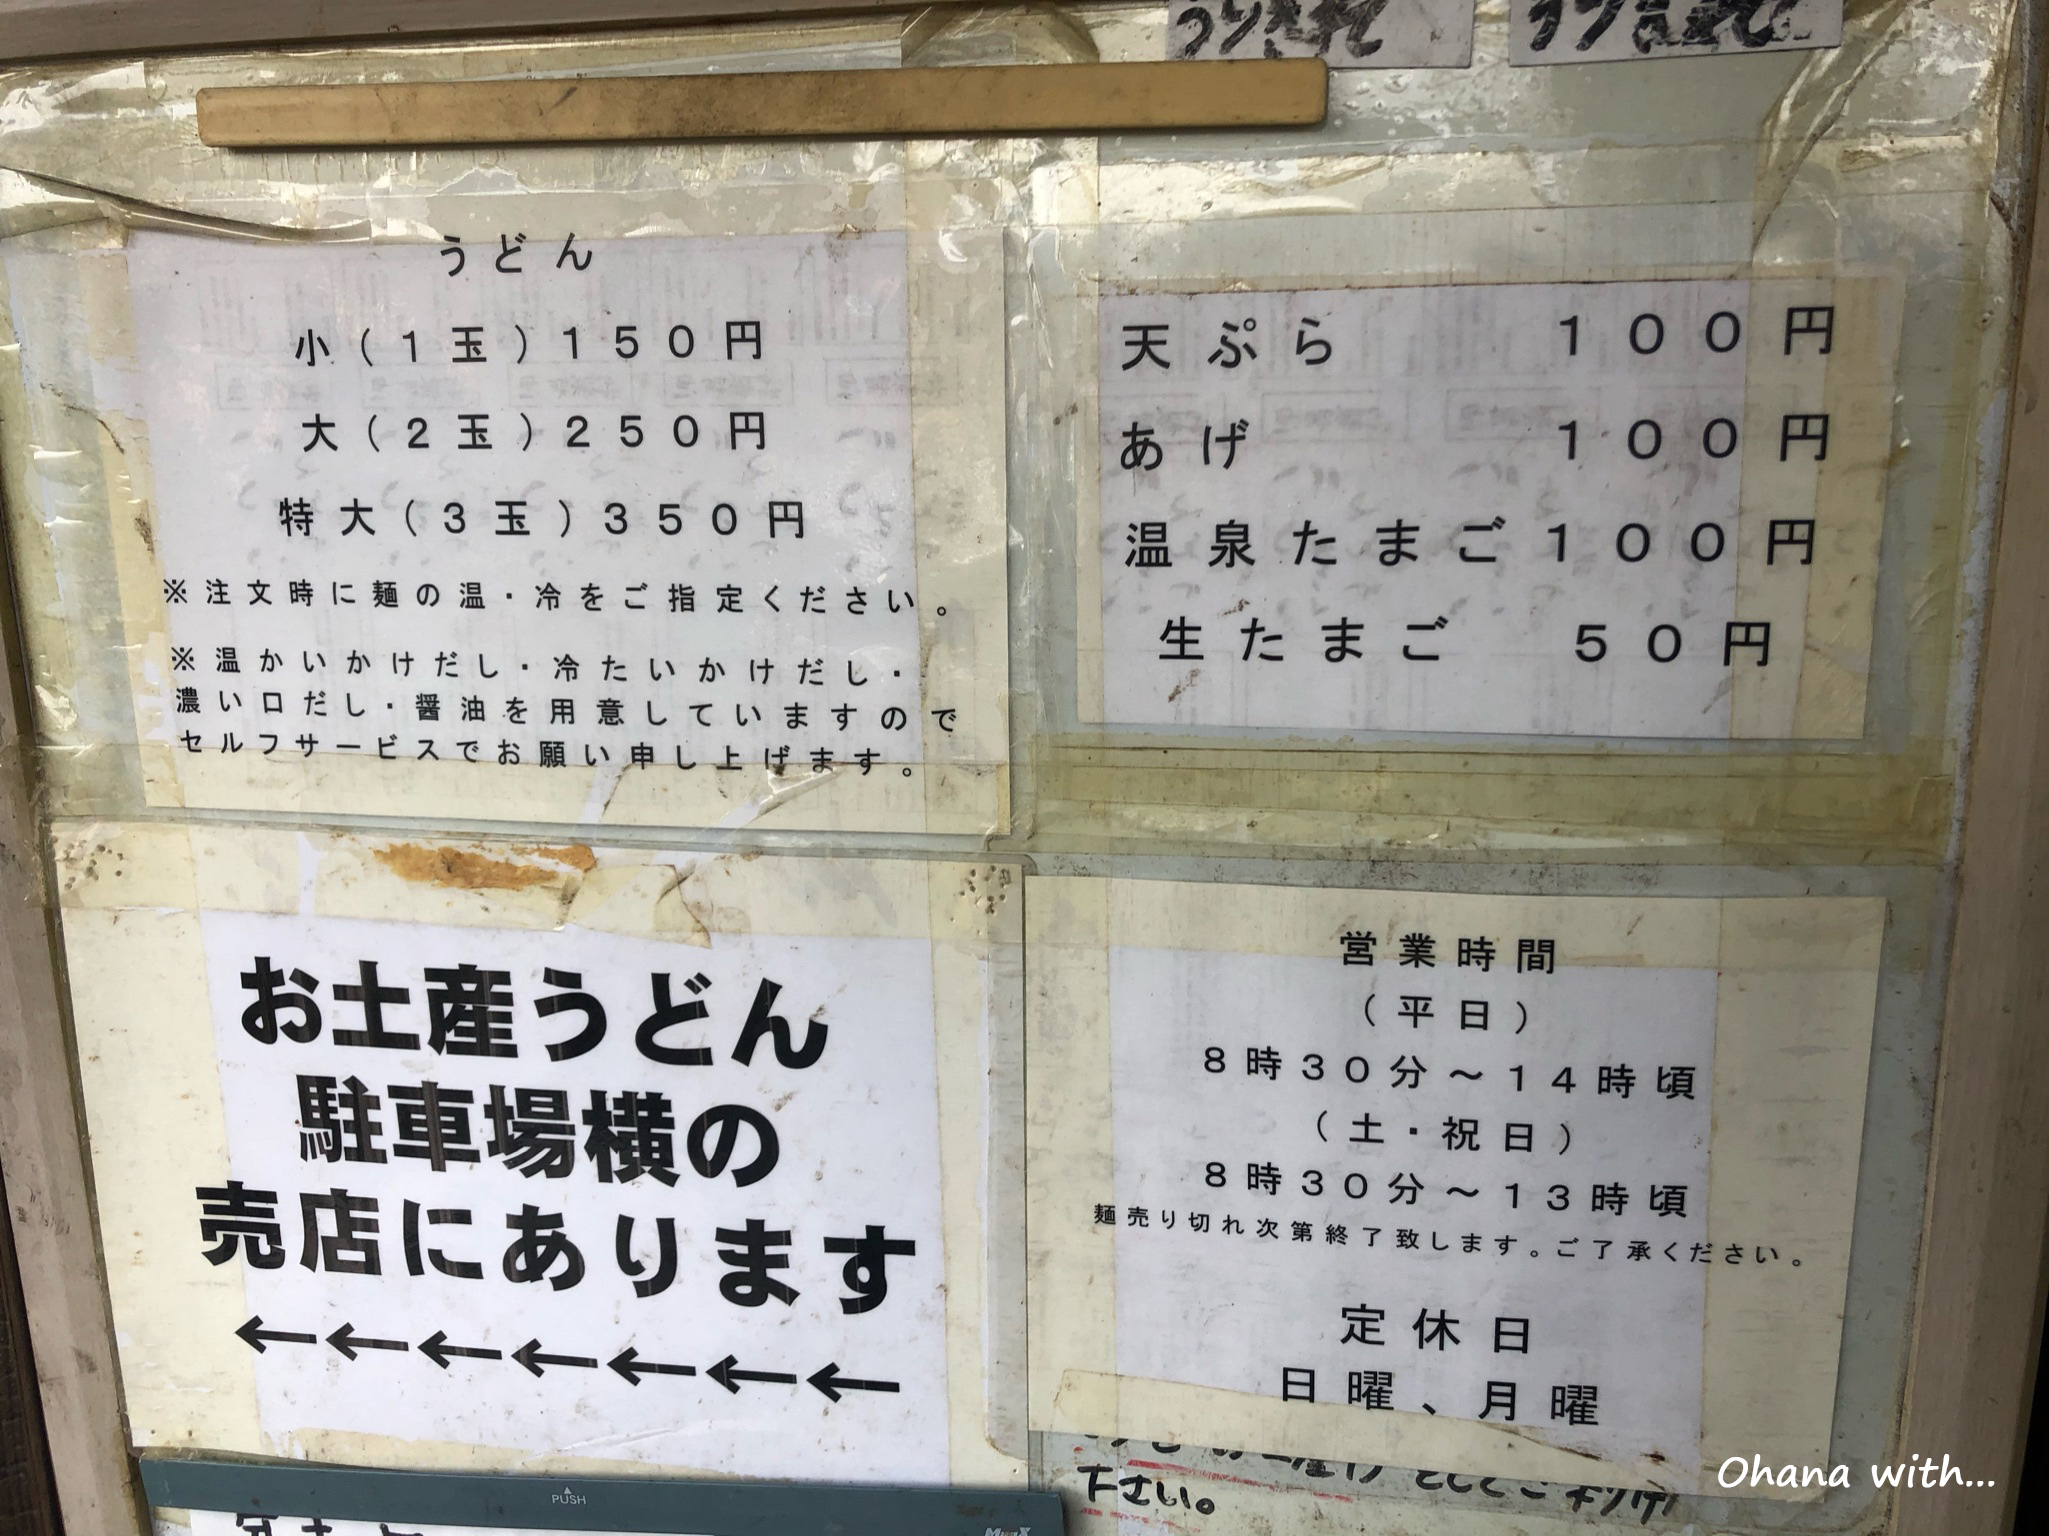 うりきれ
うりきれ
うどん
小(1玉)150円
大(2玉)250円
特大(3玉)350円
※注文時に麺の温・冷をご指定ください。
※温かいかけだし・冷たいかけだし・
濃い口だし・醤油を用意していますので
セルフサービスでお願い申し上げます。
天ぷら 100円
あげ 100円
温泉たまご100円
生たまご 50円
お土産うどん
駐車場横の
売店にあります
←←←←←←←
営業時間
(平日)
8時30分～14時頃
(土・祝日)
8時30分～13時頃
麺売り切れ次第終了致します。ご了承ください。
定休日
日曜、月曜
下さい。
PUSH
Ohana with...